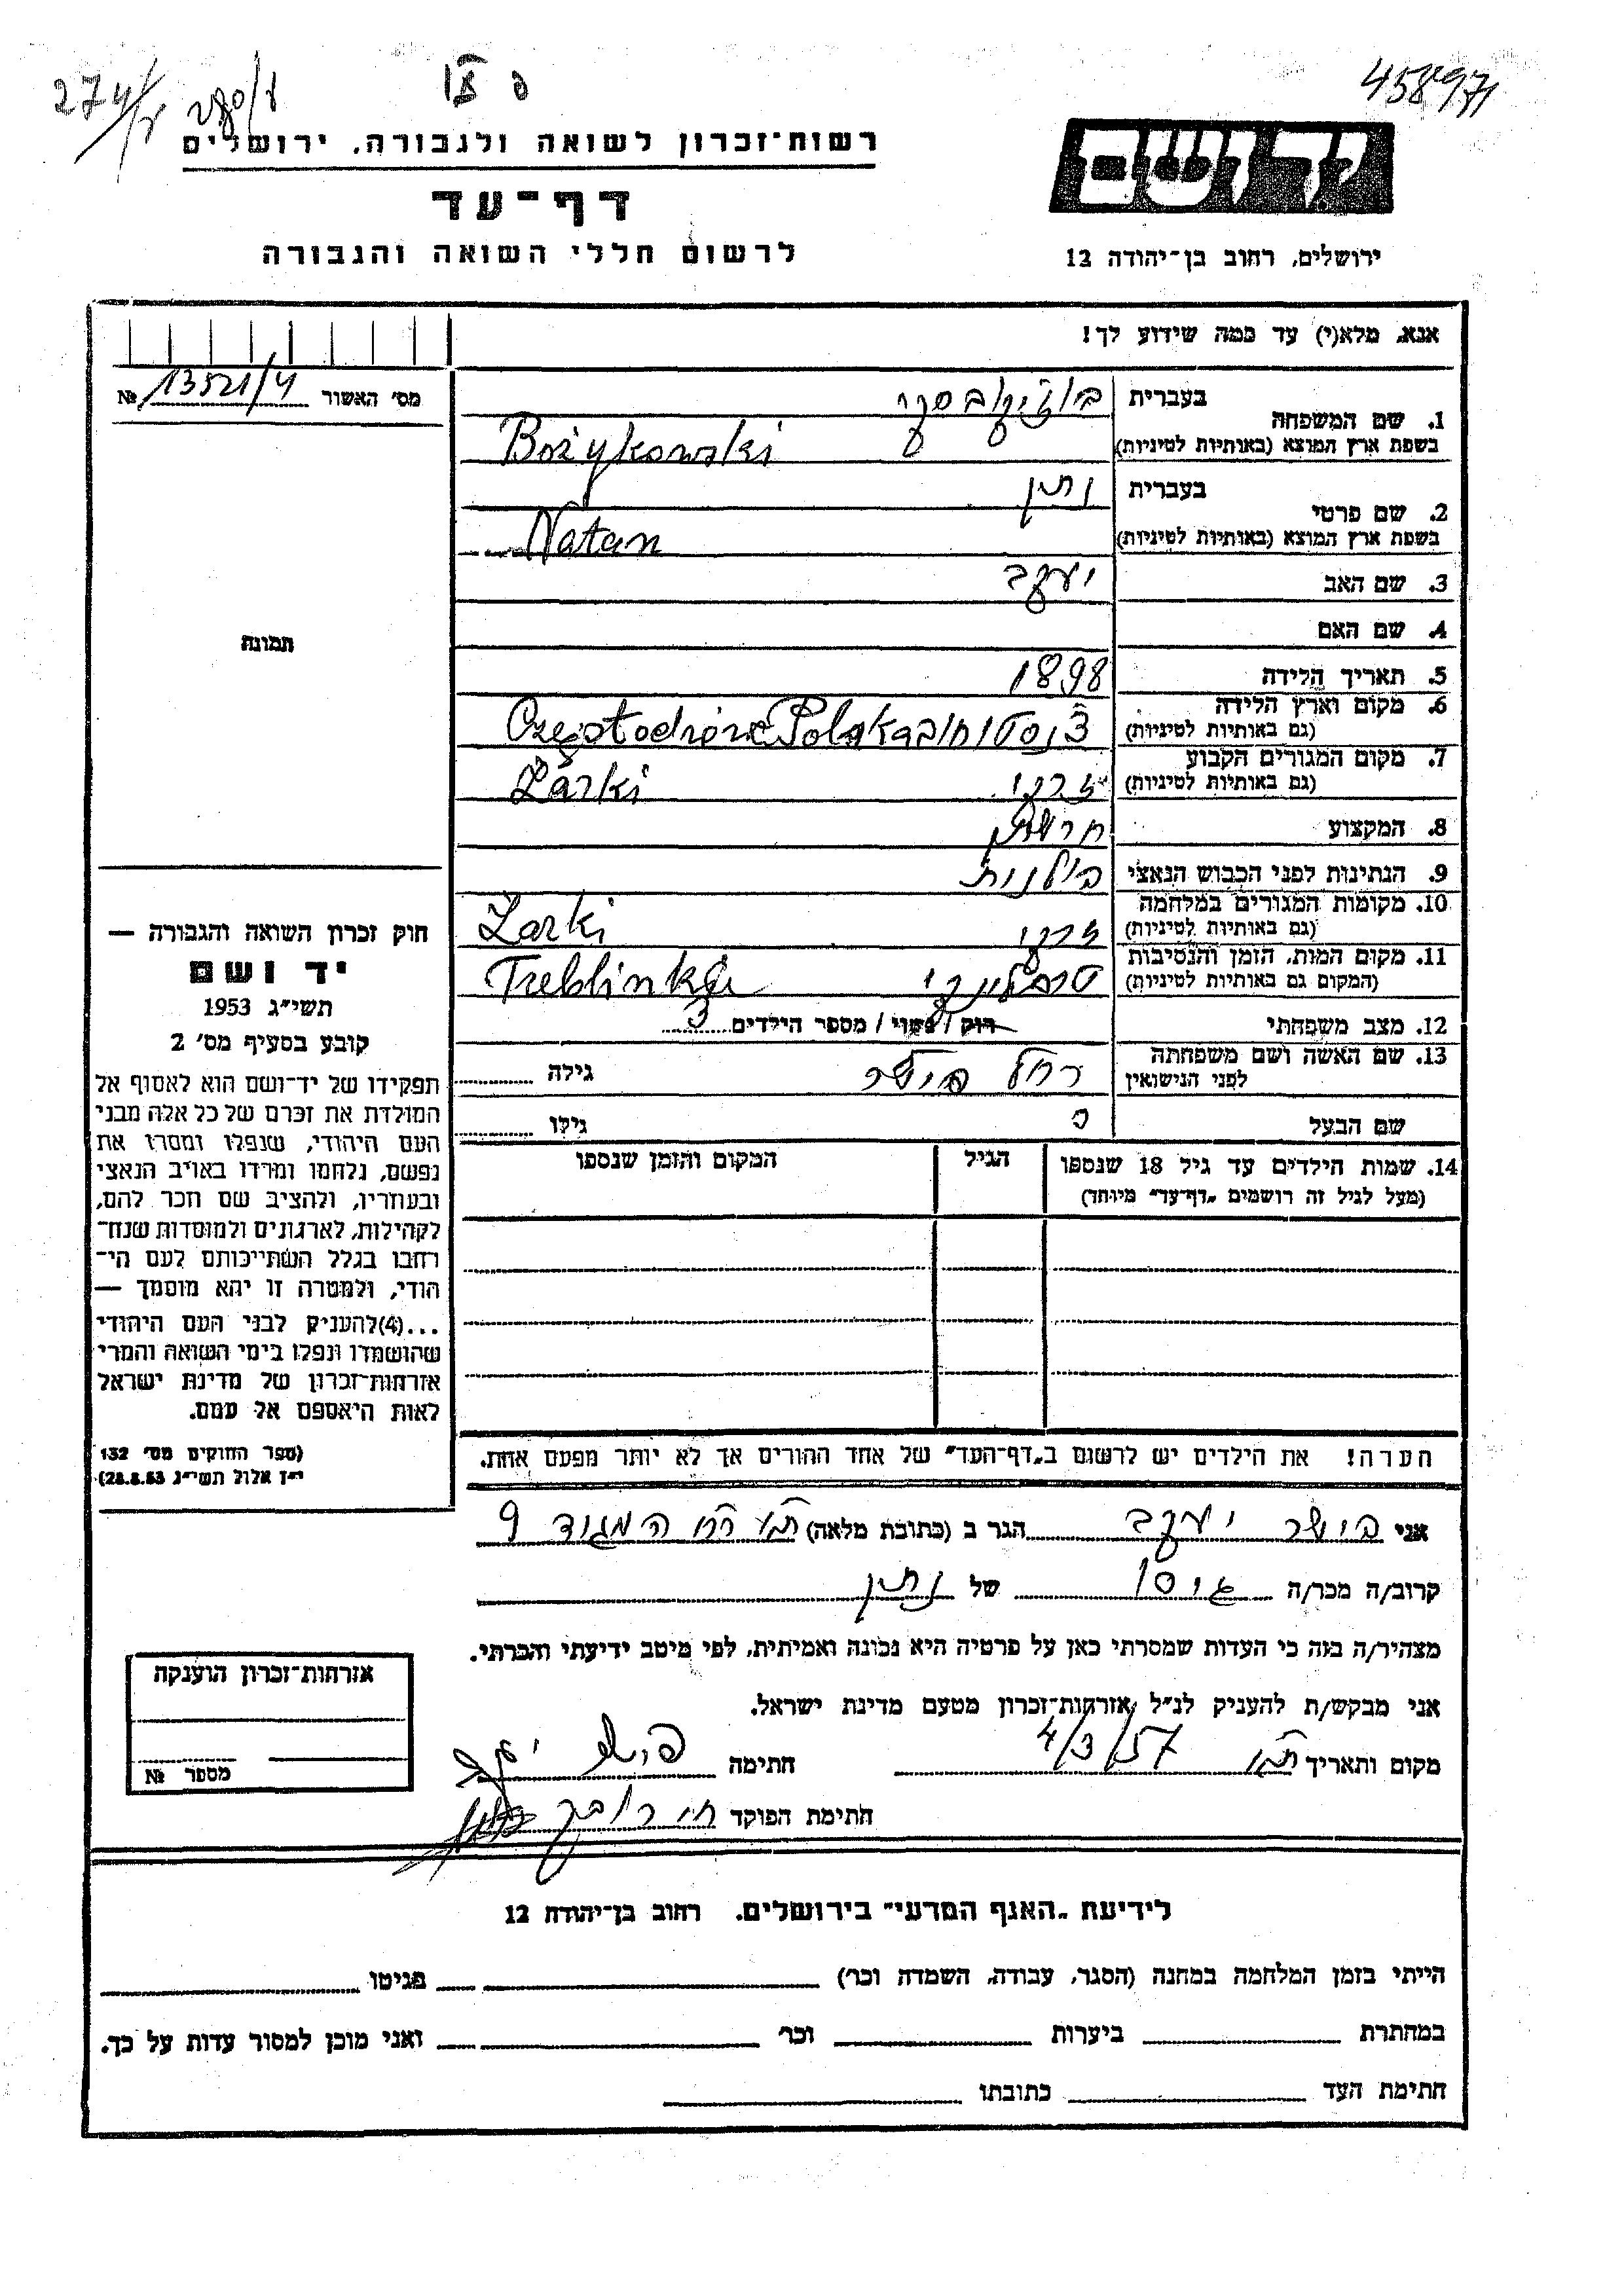 458971
274/ו
רשות־זכרון לשואה ולגבורה, ירושלים
דף־עד
לרשום חללי השואה והגבורה
יד ושם
ירושלים, רחוב בן־יהודה 12
אנא, מלא(י) עד כמה שידוע לך!
מס׳ האשור 13521/4 №
1. שם המשפחה בעברית בוז׳יקובסקי
בשפת ארץ המוצא (באותיות לטיניות) Bożykowski
2. שם פרטי בעברית נתן
בשפת ארץ המוצא (באותיות לטיניות) Natan
3. שם האב יעקב
4. שם האם
5. תאריך הלידה 1898
6. מקום וארץ הלידה
(גם באותיות לטיניות) Polska
7. מקום המגורים הקבוע
(גם באותיות לטיניות) זרקי Żarki
8. המקצוע
9. הנתינות לפני הכבוש הנאצי פולנית
10. מקומות המגורים במלחמה
(גם באותיות לטיניות) זרקי Żarki
11. מקום המות, הזמן והנסיבות
(המקום גם באותיות לטיניות) טרבלינקי Treblinka
12. מצב משפחתי רוק / נשוי / מספר הילדים 3
13. שם האשה ושם משפחתה
לפני הנישואין רחל גילה
שם הבעל גילו
14. שמות הילדים עד גיל 18 שנספו הגיל המקום והזמן שנספו
(מעל לגיל זה רושמים „דף־עד״ מיוחד)
הערה! את הילדים יש לרשום ב„דף־העד״ של אחד ההורים אך לא יותר מפעם אחת.
תמונה
חוק זכרון השואה והגבורה —
יד ושם
תשי״ג 1953
קובע בסעיף מס׳ 2
תפקידו של יד־ושם הוא לאסוף אל
המולדת את זכרם של כל אלה מבני
העם היהודי, שנפלו ומסרו את
נפשם, נלחמו ומרדו באויב הנאצי
ובעוזריו, ולהציב שם וזכר להם,
לקהילות, לארגונים ולמוסדות שנח־
רבו בגלל השתייכותם לעם הי־
הודי, ולמטרה זו יהא מוסמך —
...(4)להעניק לבני העם היהודי
שהושמדו ונפלו בימי השואה והמרי
אזרחות־זכרון של מדינת ישראל
לאות היאספם אל עמם.
(ספר החוקים מס׳ 132
י״ז אלול תשי״ג 28.8.53)
אני יעקב הגר ב (כתובת מלאה) המגיד 9
קרוב/ה מכר/ה גיסו של נתן
מצהיר/ה בזה כי העדות שמסרתי כאן על פרטיה היא נכונה ואמיתית, לפי מיטב ידיעתי והכרתי.
אני מבקש/ת להעניק לנ״ל אזרחות־זכרון מטעם מדינת ישראל.
מקום ותאריך 4/3/57 חתימה
חתימת הפוקד
אזרחות־זכרון הוענקה
מספר №
לידיעת „האגף המדעי״ בירושלים, רחוב בן־יהודה 12
הייתי בזמן המלחמה במחנה (הסגר, עבודה, השמדה וכו׳) בגיטו
במחתרת ביערות וכו׳ ואני מוכן למסור עדות על כך.
חתימת העד כתובתו